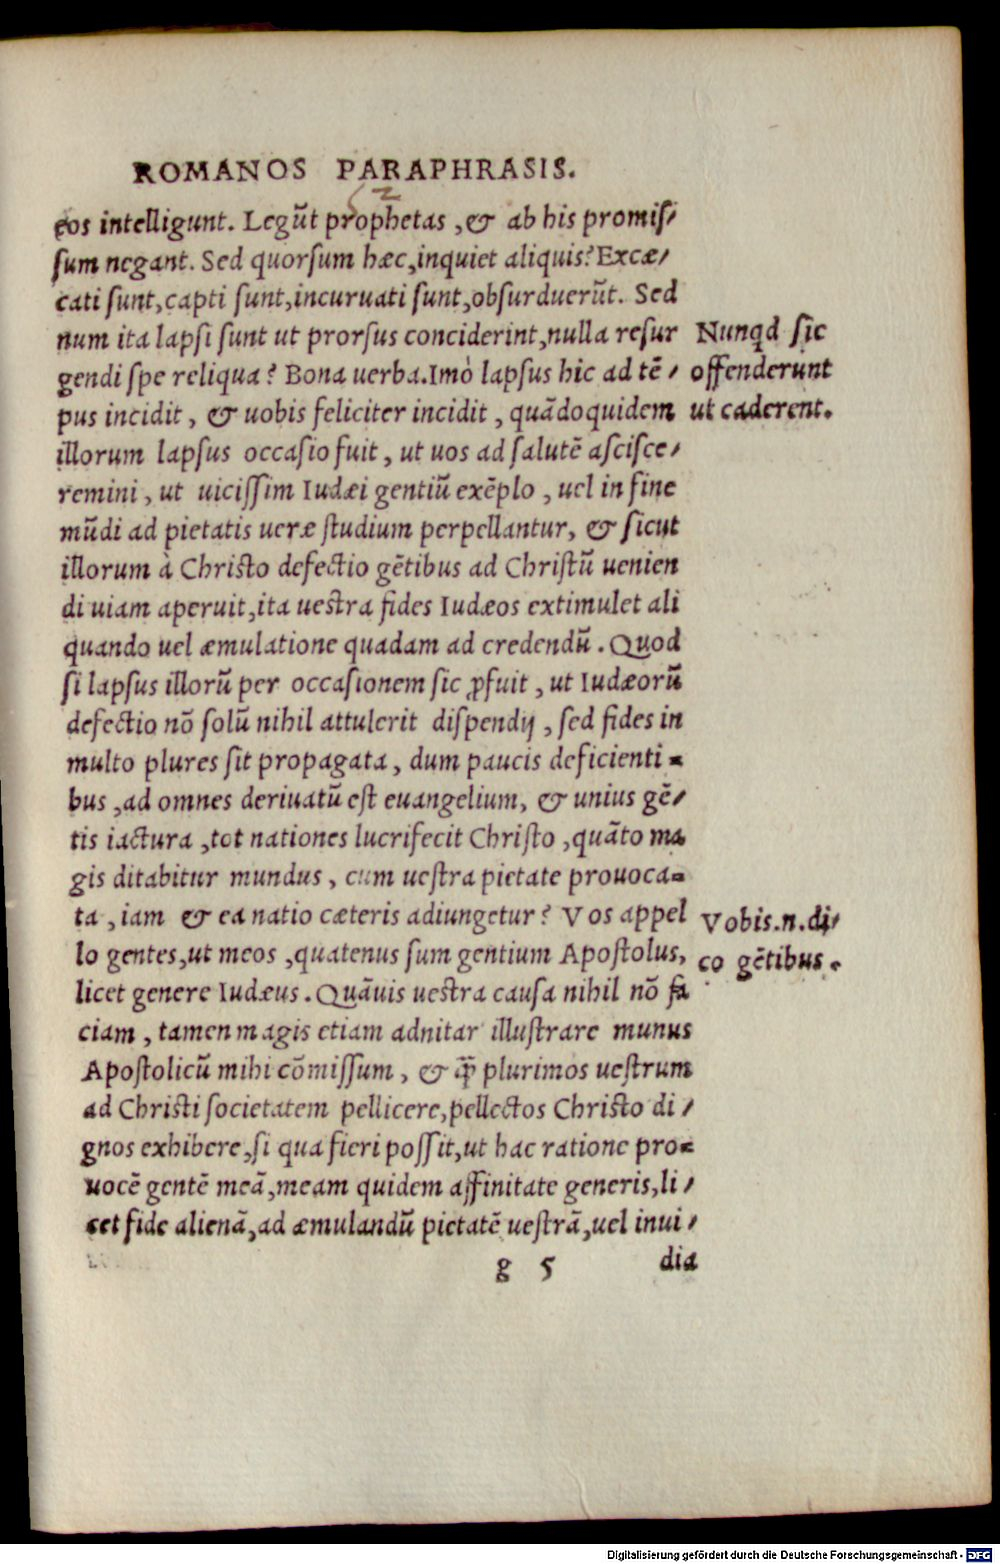 ROMANOS PARAPHRASIS.
eos intelligunt. Legũt prophetas, & ab his promiſ⸗
ſum negant. Sed quorſum hæc, inquiet aliquis? Excæ⸗
cati ſunt, capti ſunt, incuruati ſunt, obſurduerũt. Sed
num ita lapſi ſunt ut prorſus conciderint, nulla reſur
gendi ſpe reliqua? Bona uerba. Imò lapſus hic ad tẽ⸗
pus incidit, & uobis feliciter incidit, quãdoquidem
illorum lapſus occaſio fuit, ut uos ad ſalutẽ aſciſce⸗
remini, ut uiciſſim Iudæi gentiũ exẽplo, uel in fine
mũdi ad pietatis ueræ ſtudium perpellantur, & ſicut
illorum à Chriſto defectio gẽtibus ad Chriſtũ uenien
di uiam aperuit, ita ueſtra fides Iudæos extimulet ali
quando uel æmulatione quadam ad credendũ. Quod
ſi lapſus illorũ per occaſionem ſic ꝓfuit, ut Iudæorũ
defectio nõ ſolũ nihil attulerit diſpendij, ſed fides in
multo plures ſit propagata, dum paucis deficienti⸗
bus, ad omnes deriuatũ eſt euangelium, & unius gẽ⸗
tis iactura, tot nationes lucrifecit Chriſto, quãto ma
gis ditabitur mundus, cum ueſtra pietate prouoca⸗
ta, iam & ea natio cæteris adiungetur? Vos appel
lo gentes, ut meos, quatenus ſum gentium Apoſtolus,
licet genere Iudæus. Quãuis ueſtra cauſa nihil nõ fa
ciam, tamen magis etiam adnitar illuſtrare munus
Apoſtolicũ mihi cõmiſſum, & ꝙ̃ plurimos ueſtrum
ad Chriſti ſocietatem pellicere, pellectos Chriſto di⸗
gnos exhibere, ſi qua fieri poſſit, ut hac ratione pro⸗
uocẽ gentẽ meã, meam quidem affinitate generis, li⸗
cet fide alienã, ad æmulandũ pietatẽ ueſtrã, uel inui⸗
g 5 dia
Nunqd ſic
offenderunt
ut caderent.
Vobis.n.di⸗
co gẽtibus.
Digitalisierung gefördert durch die Deutsche Forschungsgemeinschaft - DFG